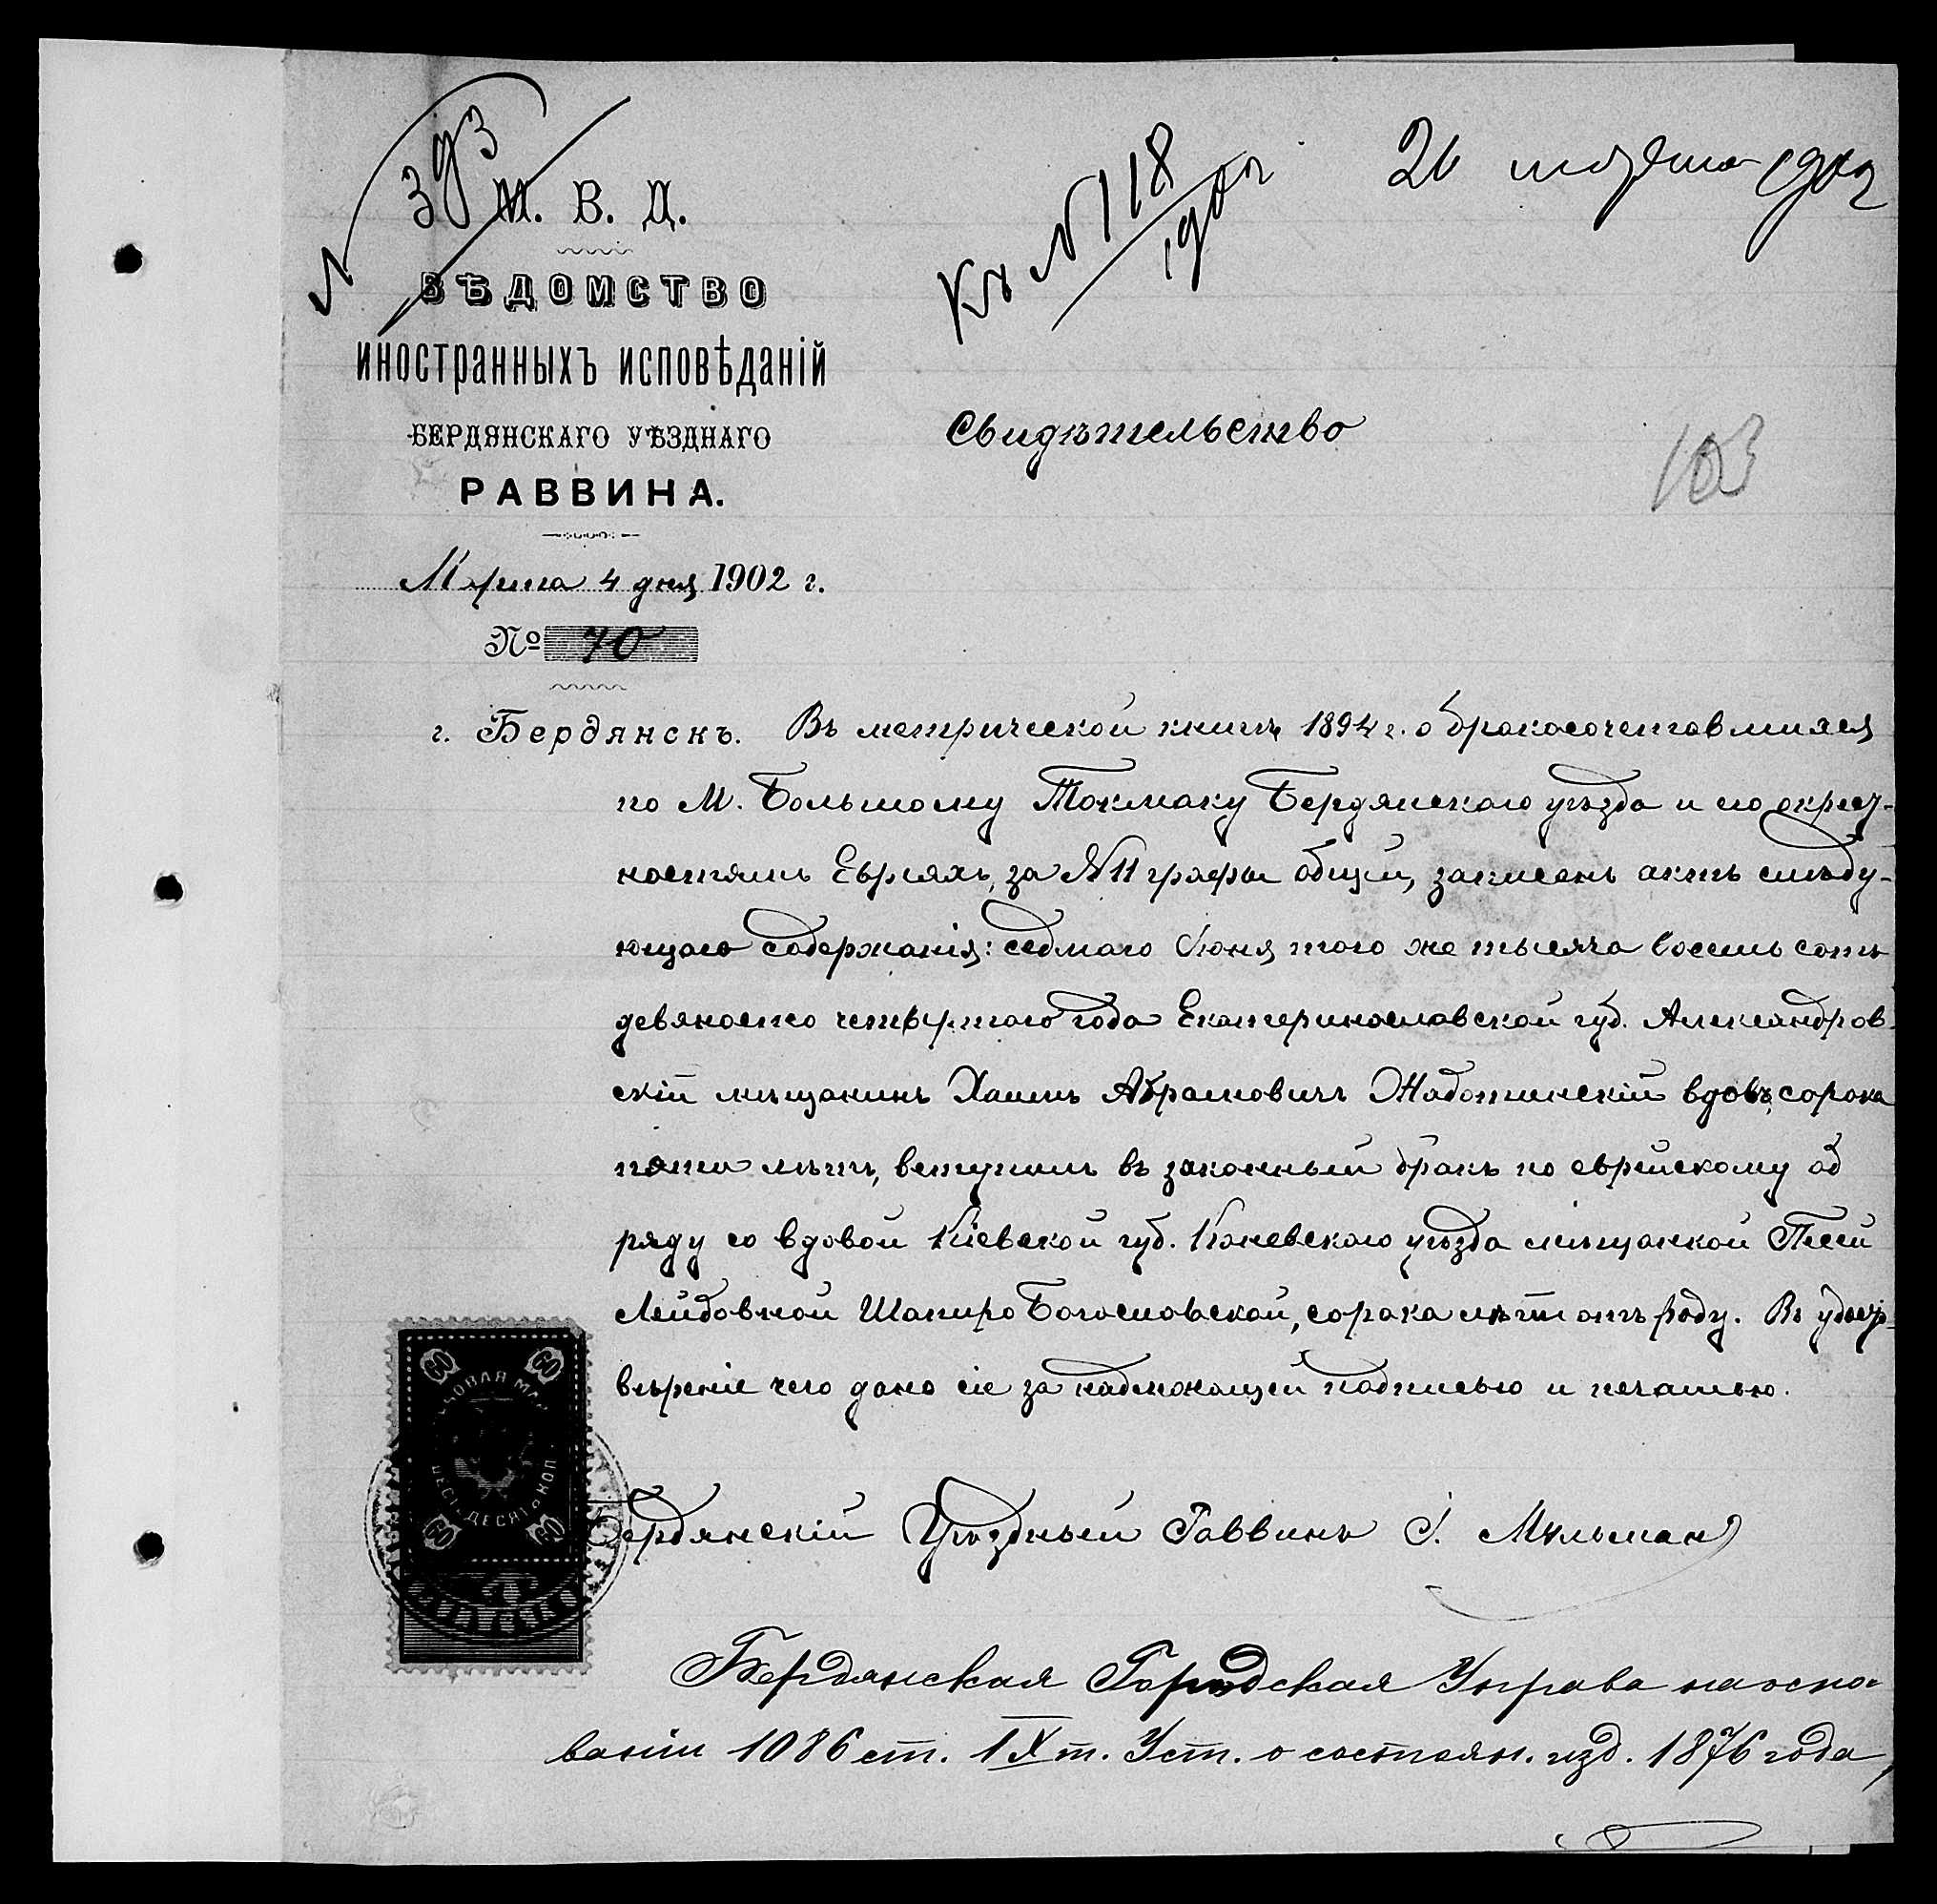 № 393
М. В. Д.
ВѢДОМСТВО
ИНОСТРАННЫХЪ ИСПОВѢДАНІЙ
БЕРДЯНСКАГО УѢЗДНАГО
РАВВИНА.
Марта 4 дня 1902 г.
№ 70
г. Бердянскъ.
Къ № 118
1902
21 марта 1902
Свидѣтельство
103
Въ метрической книгѣ 1894 г. о бракосочетавшихся
по М. Большому Токмаку Бердянскаго уѣзда и его окрест-
ностямъ Евреяхъ, за № 11 графы общей, записанъ актъ слѣду-
ющаго содержанія: седмаго Іюня того же тысяча восемь сотъ
девяносто четвертаго года Екатеринославской губ. Александров-
скій мѣщанинъ Хаимъ Абрамовичъ Жаботинскій вдовъ, сорока
пяти лѣтъ, вступилъ въ законный бракъ по еврейскому об
ряду со вдовой Кіевской губ. Каневскаго уѣзда мѣщанкой Песей
Лейбовной Шапиро Богославской, сорока лѣтъ отъ роду. Въ удосто-
вѣреніе чего дано сіе за надлежащей подписью и печатью.
60 60
ШЕСТЬДЕСЯТЪ КОП.
60 60
Бердянскій Уѣздный Раввинъ І. Мульман
Бердянская Городская Управа на осно-
ваніи 1086 ст. IX т. Уст. о состоян. изд. 1876 года,